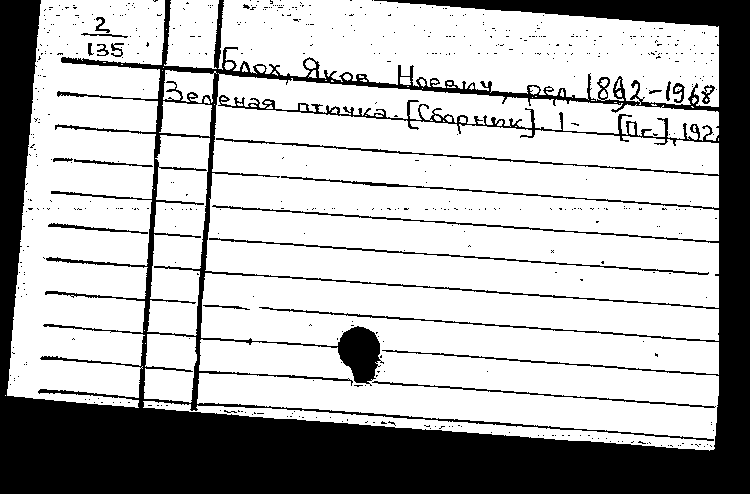 2
135
Блох, Яков Ноевич, ред. 1892-1968
Зеленая птичка. [Сборник]. 1- [Пг.], 1922